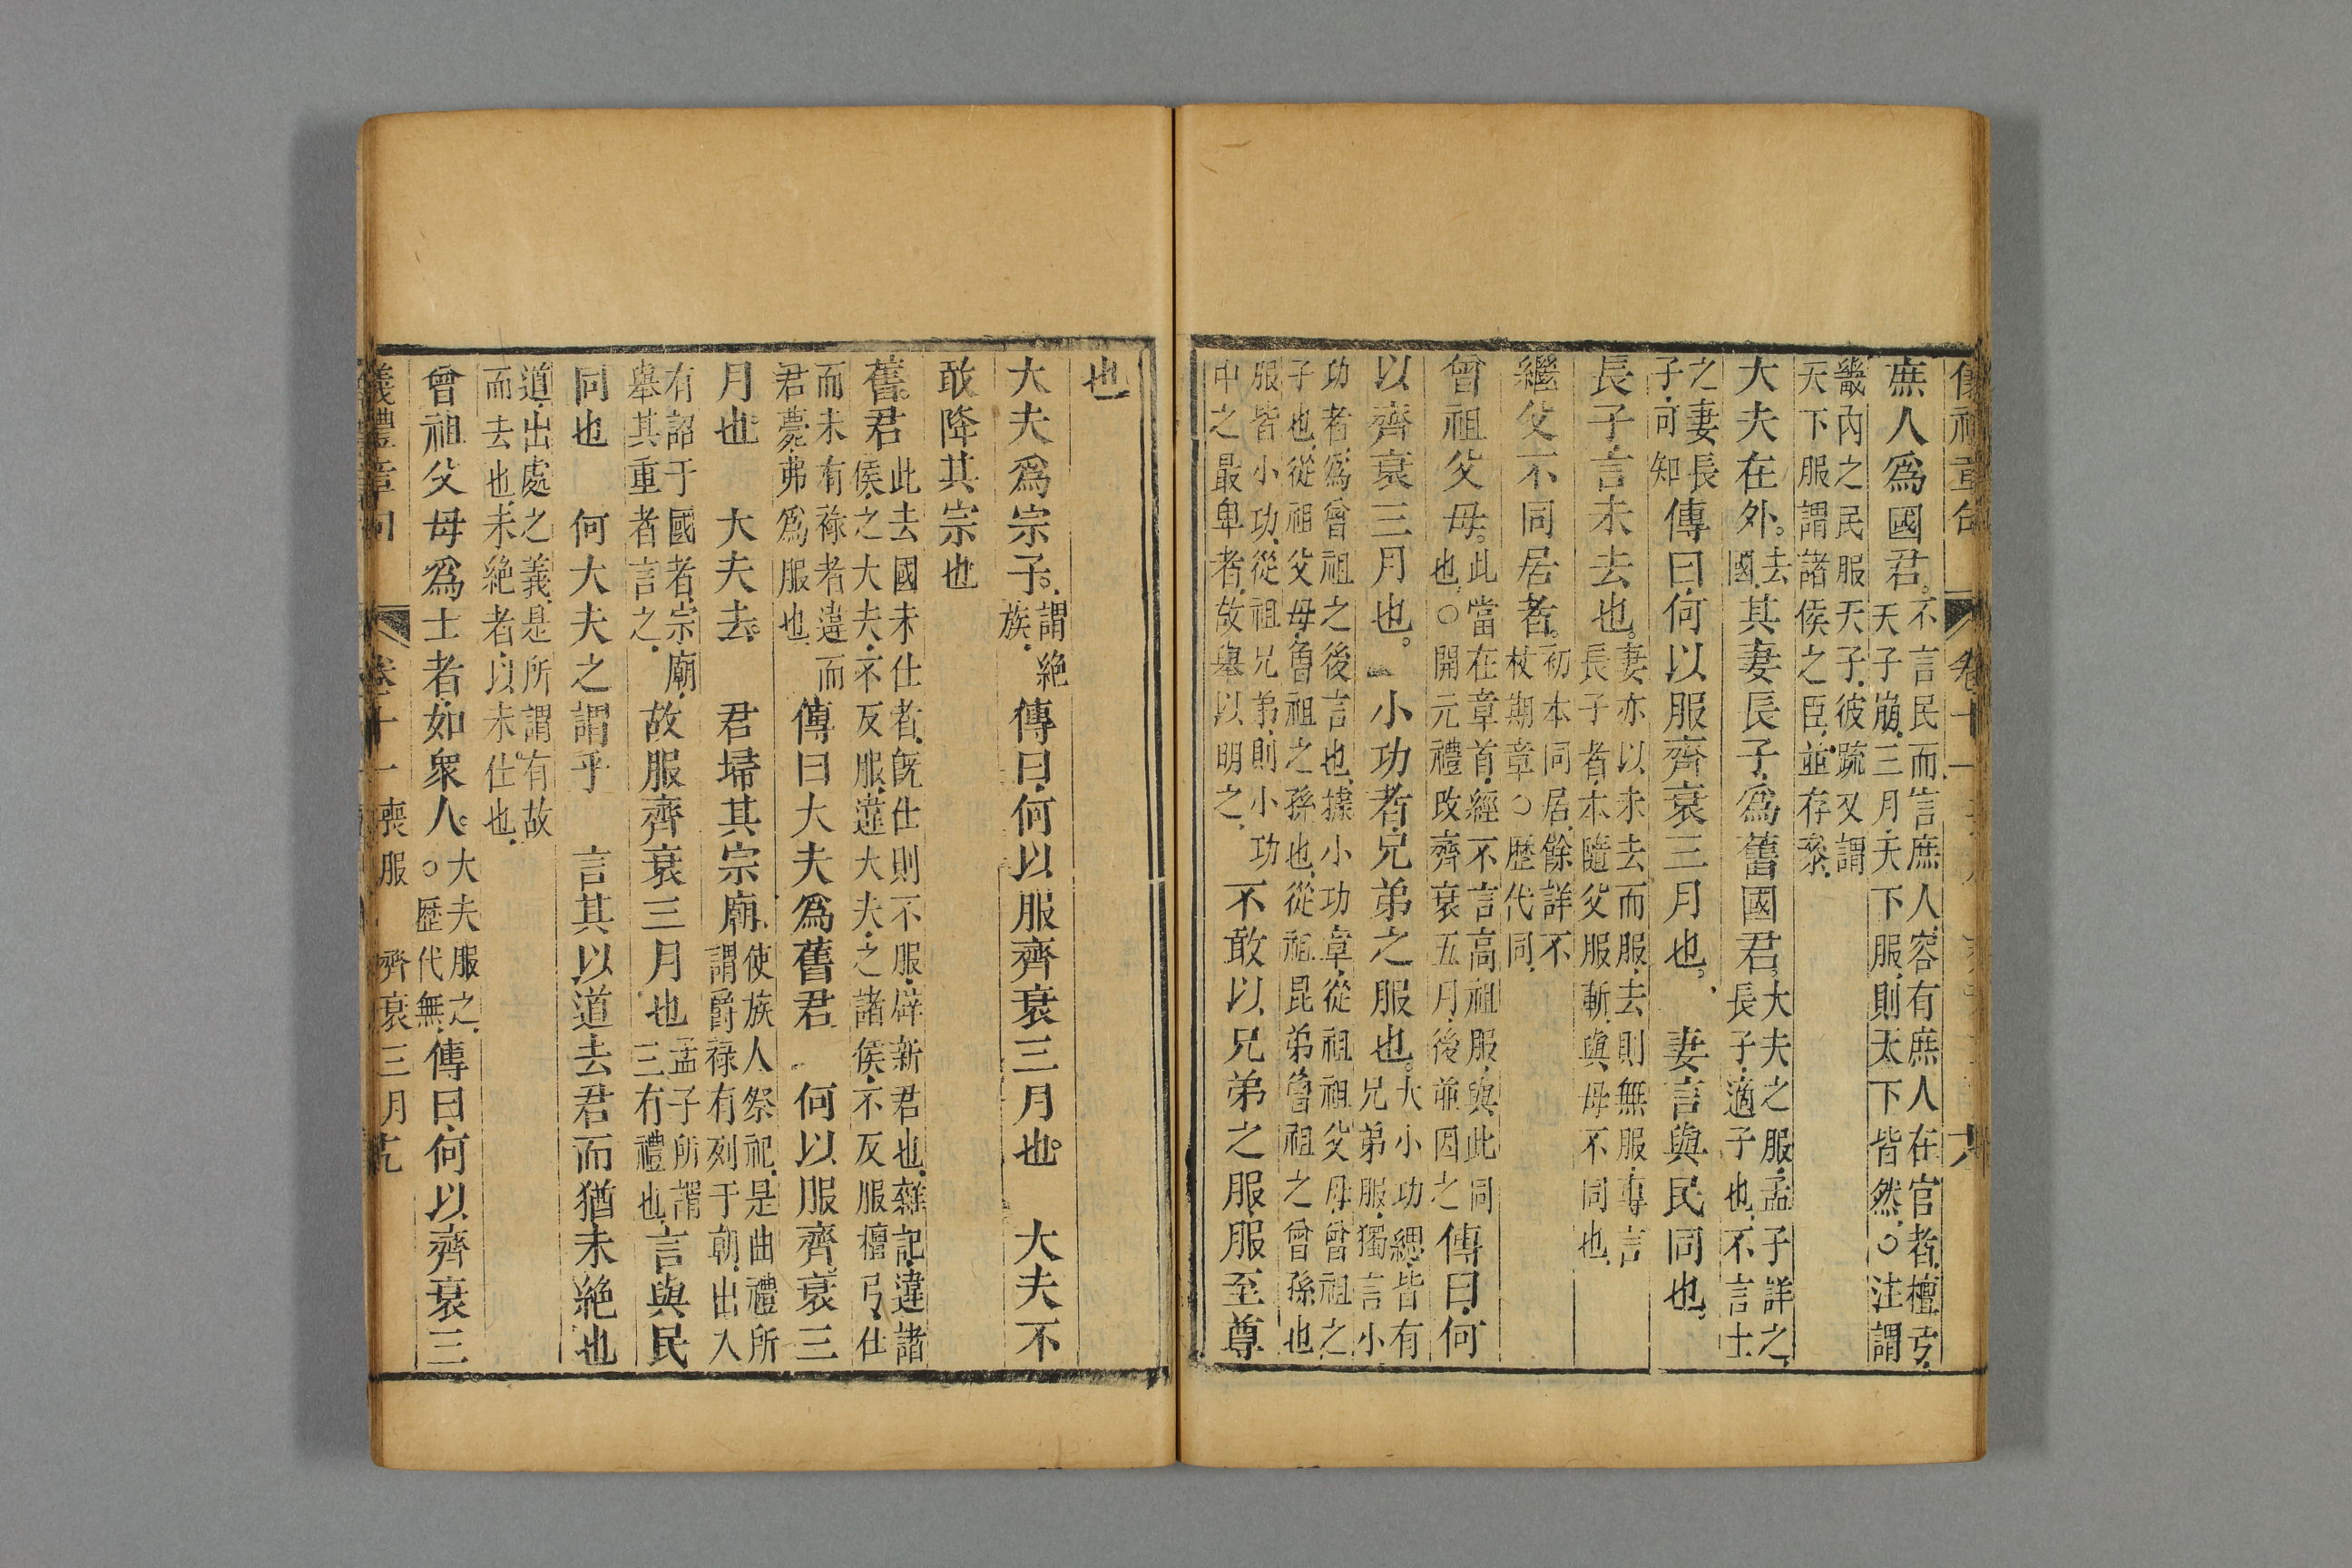 儀禮章句　卷十一
庶人爲國君。不言民而言庶人、容有庶人在官者、檀弓、
天子崩、三月、天下服、則天下皆然、○注謂
畿內之民服天子、彼疏又謂
天下服謂諸侯之臣、並存叅、
大夫在外。去
國、其妻長子、爲舊國君。大夫之服、孟子詳之、
長子、適子也、不言士
之妻、長
子、可知、傳曰、何以服齊衰三月也。　妻言與民同也、
長子、言未去也。妻亦以未去而服、去則無服、專言
長子者、本隨父服斬、與母不同也、
繼父不同居者。初本同居、餘詳不
杖期章、○歷代同、
曾祖父母。此當在章首、經不言高祖服、與此同
也、○開元禮改齊衰五月、後並因之、傳曰、何
以齊衰三月也。　小功者、兄弟之服也。大小功緦、皆有
兄弟服、獨言小
功者、爲曾祖之後言也、據小功章、從祖祖父母、曾祖之
子也、從祖父母、曾祖之孫也、從祖昆弟、曾祖之曾孫也、
服皆小功、從祖兄弟、則小功
中之最卑者、故舉以明之、不敢以兄弟之服、服至尊
也
大夫爲宗子。謂絶
族、傳曰、何以服齊衰三月也。　大夫不
敢降其宗也
舊君　此去國未仕者、旣仕則不服、辟新君也、雜記、違諸
侯、之大夫、不反服、違大夫、之諸侯、不反服、檀弓、仕
而未有祿者、違而
君薨、弗爲服也、傳曰、大夫爲舊君　何以服齊衰三
月也　大夫去。君埽其宗廟、使族人祭祀、是曲禮所
謂爵祿有列于朝、出入
有詔于國者、宗廟、
舉其重者言之、故服齊衰三月也　孟子所謂
三有禮也、言與民
同也　何大夫之謂乎　言其以道去君而猶未絶也
道、出處之義、是所謂有故
而去也、未絶者、以未仕也、
曾祖父母爲士者、如衆人。大夫服之、
○歷代無、傳曰、何以齊衰三
儀禮章句　卷十一　喪服　齊衰三月